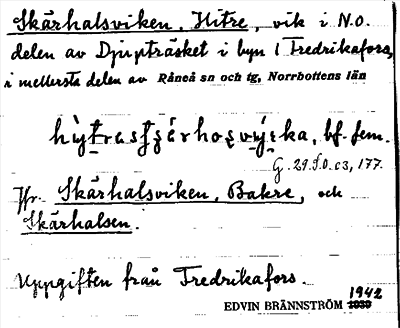 Skärhalsviken, Hitre, vik i N.O.
delen av Djupträsket i byn Fredrikafors,
i mellersta delen av Råneå sn och tg, Norrbottens län
bf. fem.
G. 29.f.0.c3, 177.
Jfr. Skärhalsviken, Bakre, och
Skärhalsen.
Uppgiften från Fredrikafors.
1942
EDVIN BRÄNNSTRÖM 1939